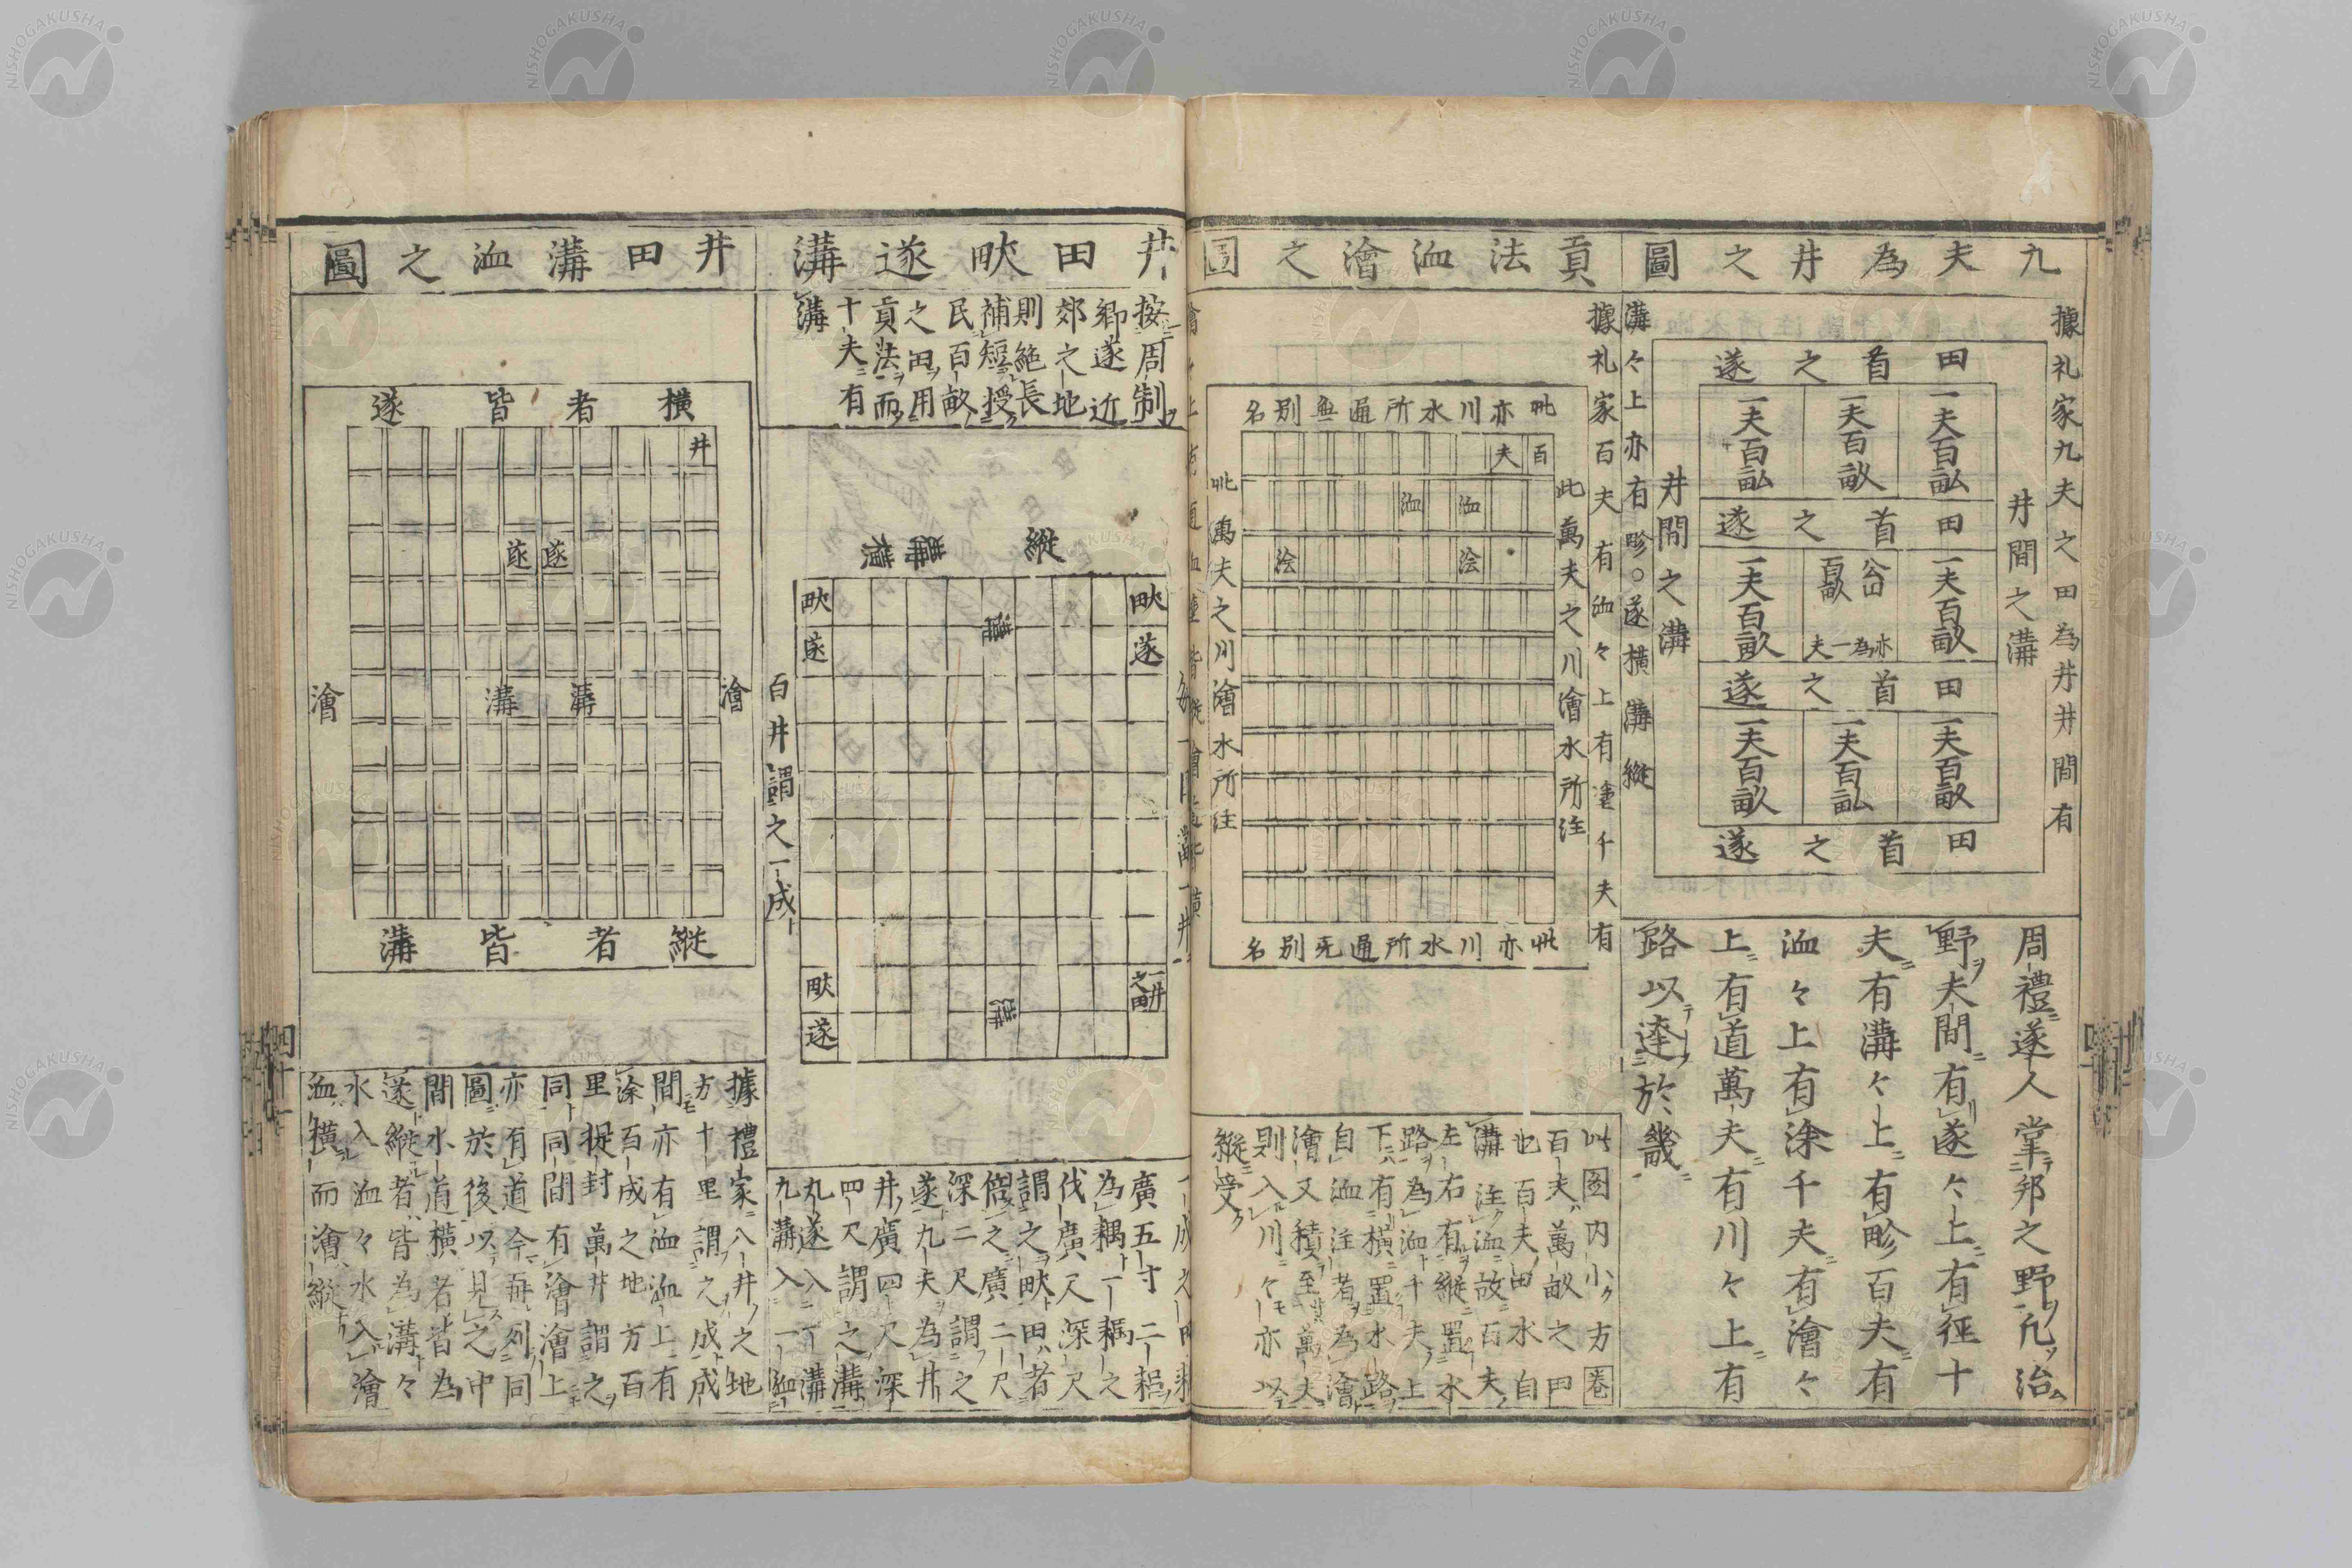 九夫為井之圖
據礼家九夫之田為井井間有
溝々上亦有畛○遂横溝縱
井間之溝
田首之遂
一夫百畝
一夫百畝
一夫百畝
田首之遂
一夫百畝
公田百畝
亦為一夫
一夫百畝
田首之遂
一夫百畝
一夫百畝
一夫百畝
田首之遂
井間之溝
周禮遂人掌邦之野凢治
野夫間有遂々上有徑十
夫有溝々上有畛百夫有
洫々上有涂千夫有澮々
上有道萬夫有川々上有
路以達於畿
貢法洫澮之圖
據礼家百夫有洫々上有塗千夫有
此亦川水所通無別名
此萬夫之川澮水所注
百夫
洫 洫
浍 浍
此萬夫之川澮水所注
此亦川水所通无別名
此図内小方卷
百夫萬畝之田
也百夫田水自
溝注洫故百夫
左右有縱置水
路為洫千夫上
下有横置水路
自洫注者為澮
澮又積至萬夫
則入川々亦以
縱受
井田畎遂溝
按周制
鄉遂近
郊之地
則絶長
補短授
民百畝
之田用
貢法而
十夫有
溝
縱
畎 畎
遂 遂
溝
畎
遂
溝
一井之田
百井謂之一成
廣五寸二耜
為耦一耦之
伐廣尺深尺
謂之畎田者
倍之廣二尺
深二尺謂之
遂九夫為井
井廣四尺深
四尺謂之溝
九遂入一溝
九溝入一洫
井田溝洫之圖
横者皆遂
井
遂 遂
澮 溝 溝 澮
縱者皆溝
據禮家八井之地
方十里謂之成成
間亦有洫洫上有
涂百成之地方百
里提封萬井謂之
同同間有澮澮上
亦有道今毎列同
圖於後以見之中
間水道横者皆為
遂縱者皆為溝々
水入洫々水入澮
洫横而澮縱
四十一